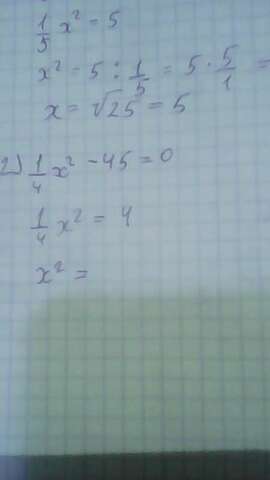 1/5 x² = 5
x² = 5 : 1/5 = 5 · 5/1 =
x = √25 = 5
2) 1/4 x² - 45 = 0
1/4 x² = 4
x² =